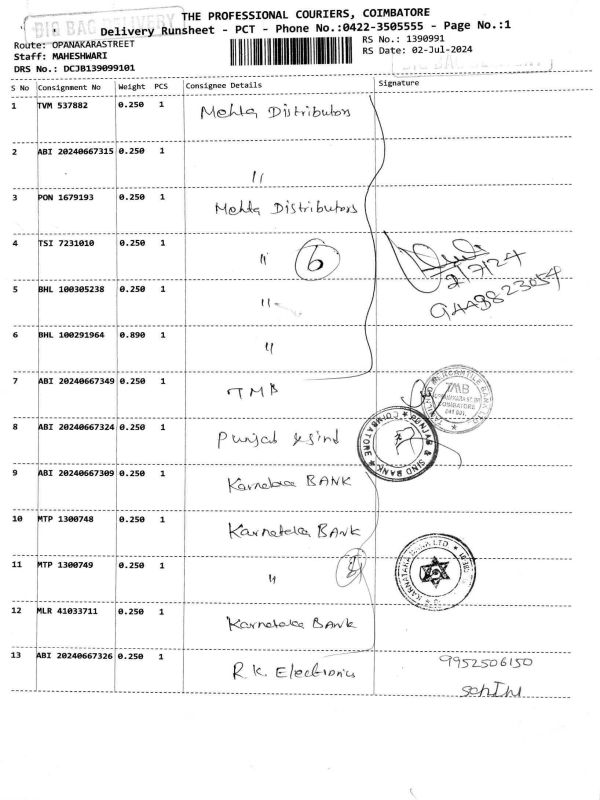 THE PROFESSIONAL COURIERS, COIMBATORE
BIG BAG DELIVERY
Delivery Runsheet - PCT - Phone No.:0422-3505555 - Page No.:1
Route: OPANAKARASTREET
RS No.: 1390991
Staff: MAHESHWARI
RS Date: 02-Jul-2024
DRS No.: DCJB139099101
BIG BAG DELIVERY
S No Consignment No Weight PCS Consignee Details Signature
1 TVM 537882 0.250 1 Mehta Distributors
2 ABI 20240667315 0.250 1 "
3 PON 1679193 0.250 1 Mehta Distributors
4 TSI 7231010 0.250 1 " 6
2/7/24
5 BHL 100305238 0.250 1 "
6 BHL 100291964 0.890 1 "
7 ABI 20240667349 0.250 1 TMB
TAMILNAD MERCANTILE BANK LTD
TMB
COIMBATORE
8 ABI 20240667324 0.250 1 Punjab & Sind
PUNJAB & SIND BANK * COIMBATORE *
9 ABI 20240667309 0.250 1 Karnataka BANK
10 MTP 1300748 0.250 1 Karnataka BANK
11 MTP 1300749 0.250 1 "
KARNATAKA BANK LTD
12 MLR 41033711 0.250 1 Karnataka Bank
13 ABI 20240667326 0.250 1 R.K. Electronics 9952506150